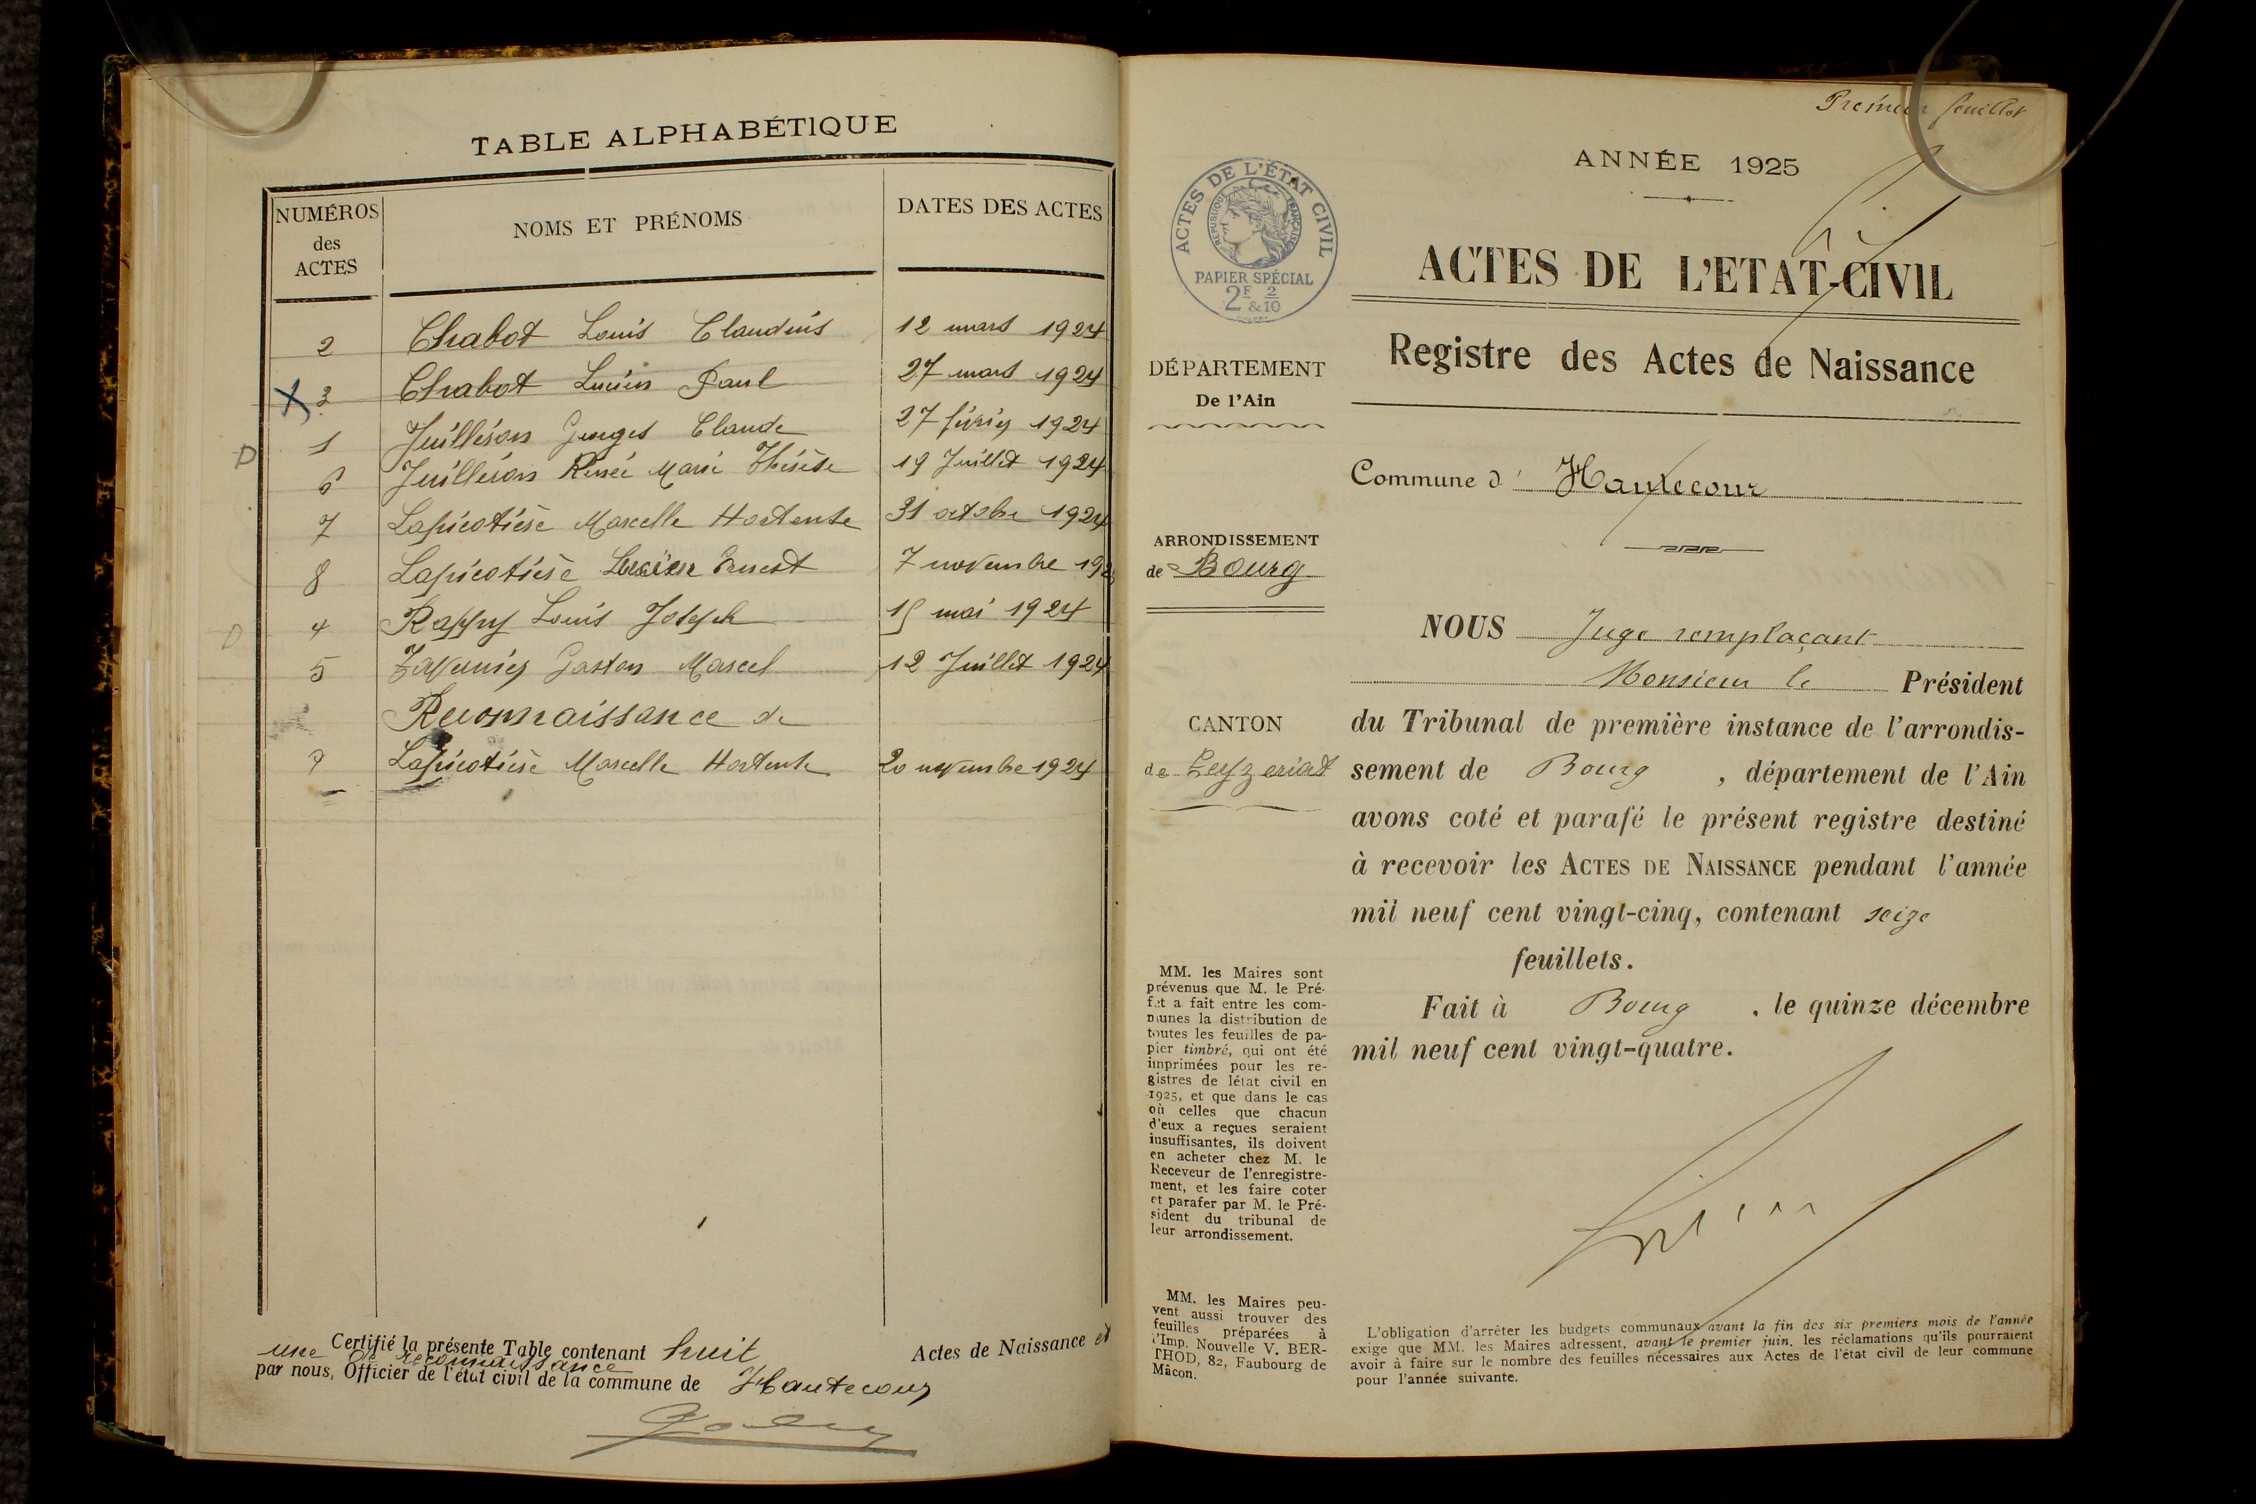 TABLE ALPHABÉTIQUE
NUMÉROS
des
ACTES
NOMS ET PRÉNOMS
DATES DES ACTES
2 Chabot Louis Claudius 12 mars 1924
X 3 Chabot Lucien Paul 27 mars 1924
1 Juilléron Georges Claude 27 février 1924
D
6 Juilléron Renée Marie Thérèse 19 Juillet 1924
7 Lapicotière Marcelle Hortense 31 octobre 1924
8 Lapicotière Lucien Ernest 7 novembre 192
4 Rappy Louis Joseph 15 mai 1924
D
5 Tavernier Gaston Marcel 12 Juillet 1924
Reconnaissance de
7 Lapicotière Marcelle Hortense 20 novembre 1924
Certifié la présente Table contenant huit Actes de Naissance et
une reconnaissance
par nous, Officier de l'état civil de la commune de Hautecour
Premier feuillet
ANNÉE 1925
ACTES DE L'ÉTAT CIVIL
RÉPUBLIQUE FRANÇAISE
PAPIER SPÉCIAL
2F 2
&10
ACTES DE L'ETAT-CIVIL
Registre des Actes de Naissance
DÉPARTEMENT
De l'Ain
Commune d' Hautecour
ARRONDISSEMENT
de Bourg
NOUS Juge remplaçant
Monsieur le Président
CANTON
de Ceyzeriat
du Tribunal de première instance de l'arrondis-
sement de Bourg, département de l'Ain
avons coté et parafé le présent registre destiné
à recevoir les ACTES DE NAISSANCE pendant l'année
mil neuf cent vingt-cinq, contenant seize
feuillets.
Fait à Bourg, le quinze décembre
mil neuf cent vingt-quatre.
MM. les Maires sont
prévenus que M. le Pré-
fet a fait entre les com-
munes la distribution de
toutes les feuilles de pa-
pier timbré, qui ont été
imprimées pour les re-
gistres de létat civil en
1925, et que dans le cas
où celles que chacun
d'eux a reçues seraient
insuffisantes, ils doivent
en acheter chez M. le
Receveur de l'enregistre-
ment, et les faire coter
et parafer par M. le Pré-
sident du tribunal de
leur arrondissement.
MM. les Maires peu-
vent aussi trouver des
feuilles préparées à
l'Imp. Nouvelle V. BER-
THOD, 82, Faubourg de
Mâcon.
L'obligation d'arrêter les budgets communaux avant la fin des six premiers mois de l'année
exige que MM. les Maires adressent, avant le premier juin, les réclamations qu'ils pourraient
avoir à faire sur le nombre des feuilles nécessaires aux Actes de l'état civil de leur commune
pour l'année suivante.